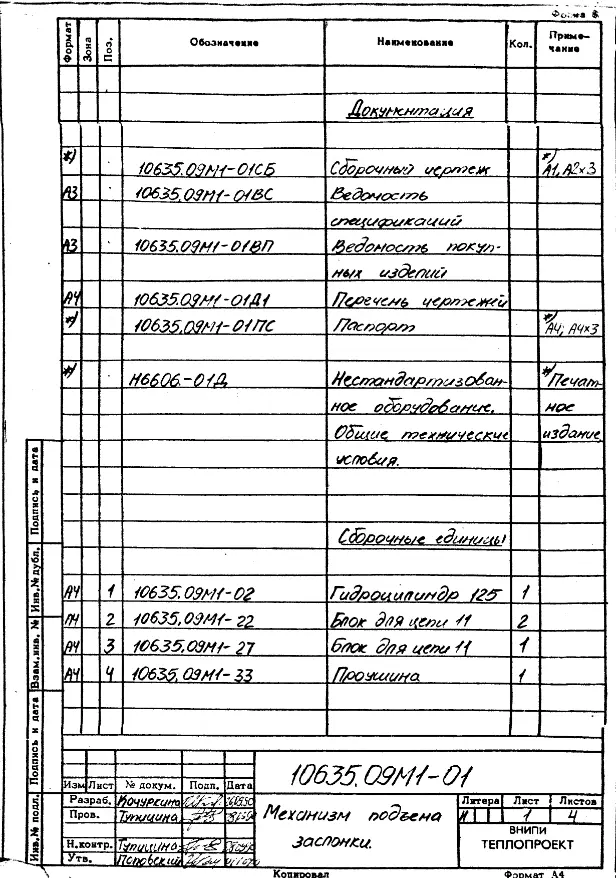 Форма 6
Формат Зона Поз. Обозначение Наименование Кол. Приме-
чание
Документация
*) 10635.09М1-01СБ Сборочный чертеж *) А1, А2×3
А3 10635.09М1-01ВС Ведомость
спецификаций
А3 10635.09М1-01ВП Ведомость покуп-
ных изделий
А4 10635.09М1-01Д1 Перечень чертежей
*) 10635.09М1-01ПС Паспорт *) А4; А4×3
*) Н6606.-01Д Нестандартизован- *) Печат-
ное оборудование. ное
Общие технические издание
условия.
Сборочные единицы
А4 1 10635.09М1-02 Гидроцилиндр 125 1
А4 2 10635.09М1-22 Блок для цепи 11 2
А4 3 10635.09М1-27 Блок для цепи 11 1
А4 4 10635.09М1-33 Проушина 1
Инв.№ подл. Подпись и дата Взам.инв. № Инв.№ дубл. Подпись и дата
10635.09М1-01
Изм Лист № докум. Подп. Дата
Разраб. Кочуркина
Пров. Тупицина
Н.контр. Тупицина
Утв. Поповский
Механизм подъема
заслонки.
Литера Лист Листов
И 1 4
ВНИПИ
ТЕПЛОПРОЕКТ
Копировал Формат А4